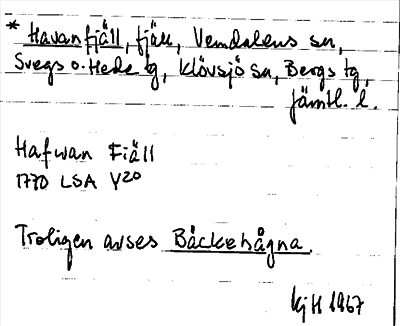 * Havanfjäll, fjäll, Vemdalens sn,
Svegs o. Hede tg, Klövsjö sn, Bergs tg,
Jämtl. l.
Hafwan Fiäll
1770 LSA Y20
Troligen avses Bäckehågna.
KjH 1967